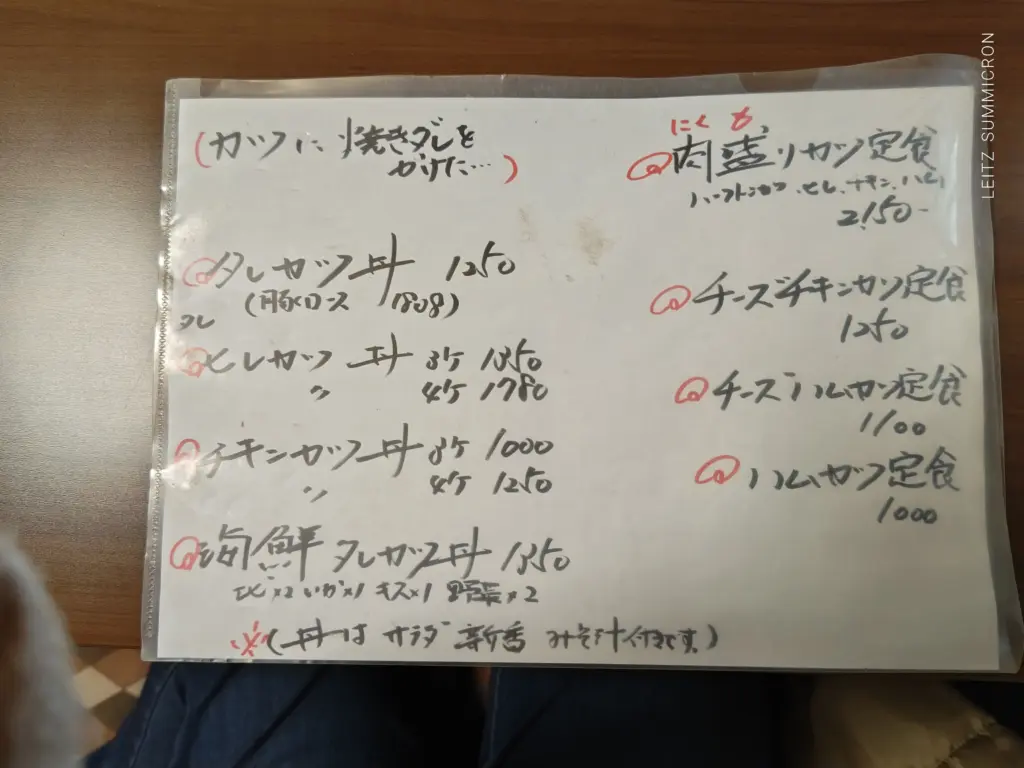 (カツに 焼きダレを
かけた…)
タレカツ丼 1250
(豚ロース 180g)
タレ
ヒレカツ 丼 3ケ 1350
〃 4ケ 1780
チキンカツ丼 3ケ 1000
〃 4ケ 1250
海鮮 タレカツ丼 1350
エビ×2 いか×1 キス×1 野菜×2
※(丼は サラダ 新香 みそ汁付きです。)
にく も
肉盛りカツ定食
ハーフトンカツ、ヒレ、チキン、ハム
2,150-
チーズチキンカツ定食
1250
チーズハムカツ定食
1100
ハムカツ定食
1000
LEITZ SUMMICRON